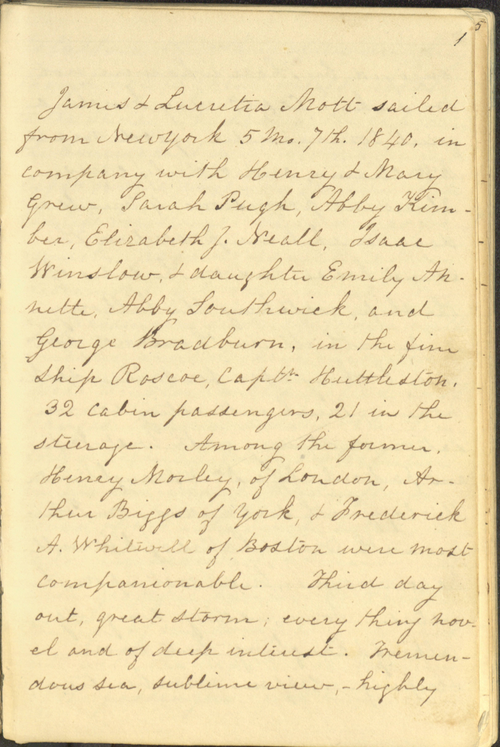 1
5
James & Lucretia Mott sailed
from New York 5 Mo. 7th. 1840, in
company with Henry & Mary
Grew, Sarah Pugh, Abby Kim-
ber, Elizabeth J. Neall, Isaac
Winslow, & daughter Emily An-
nette, Abby Southwick, and
George Bradburn, in the fine
ship Roscoe, Captn. Huttleston.
32 cabin passengers, 21 in the
steerage. Among the former,
Henry Morley, of London, Ar-
thur Biggs of York, & Frederick
A. Whitwell of Boston were most
companionable. Third day
out, great storm; every thing nov-
el and of deep interest. Tremen-
dous sea, sublime view, - highly